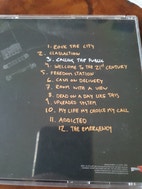 1. ROCK THE CITY
2. CLASSACTION
3. CALLING THE PUBLIC
4. WELCOME TO THE 21ST CENTURY
5. FREEDOM STATION
6. CASH ON DELIVERY
7. ROOM WITH A VIEW
8. DEAD ON A DAY LIKE THIS
9. UPGRADED SYSTEM
10. MY LIFE MY CHOICE MY CALL
11. ADDICTED
12. THE EMERGENCY